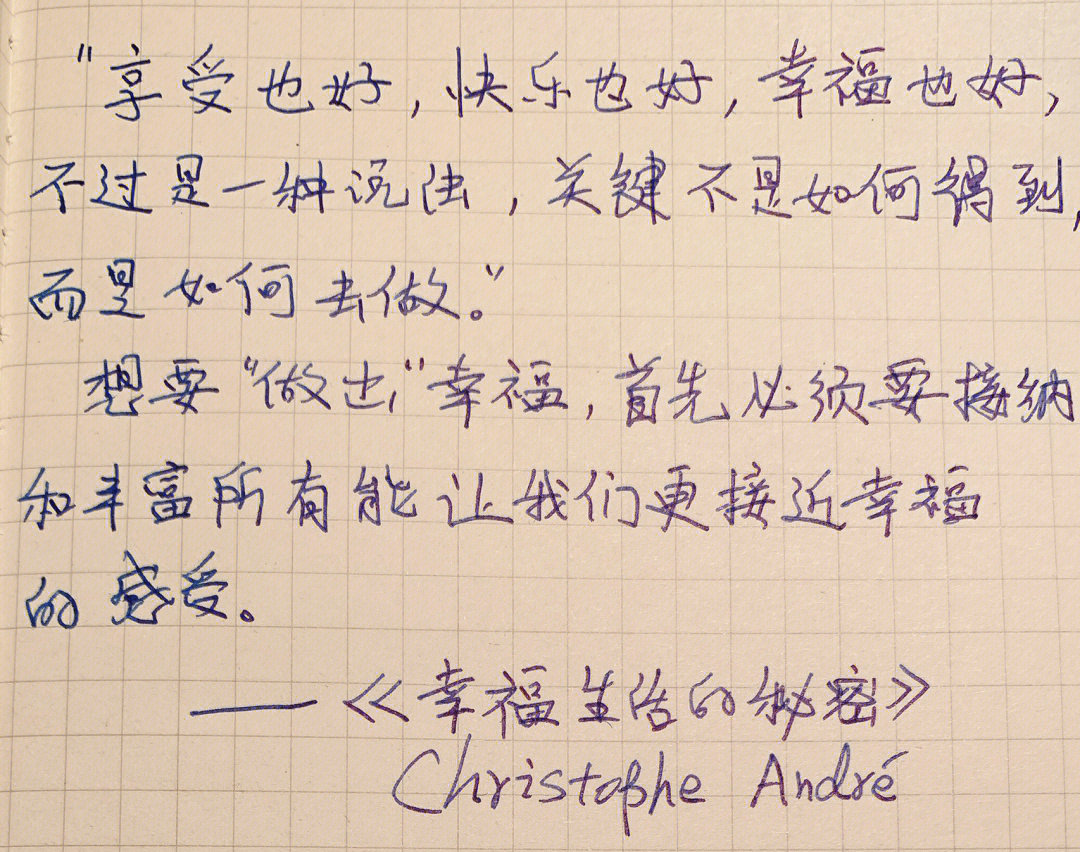 "享受也好，快乐也好，幸福也好，
不过是一种说法，关键不是如何得到，
而是如何去做。"
想要"做出"幸福，首先必须要接纳
和丰富所有能让我们更接近幸福
的感受。
——《幸福生活的秘密》
Christophe André